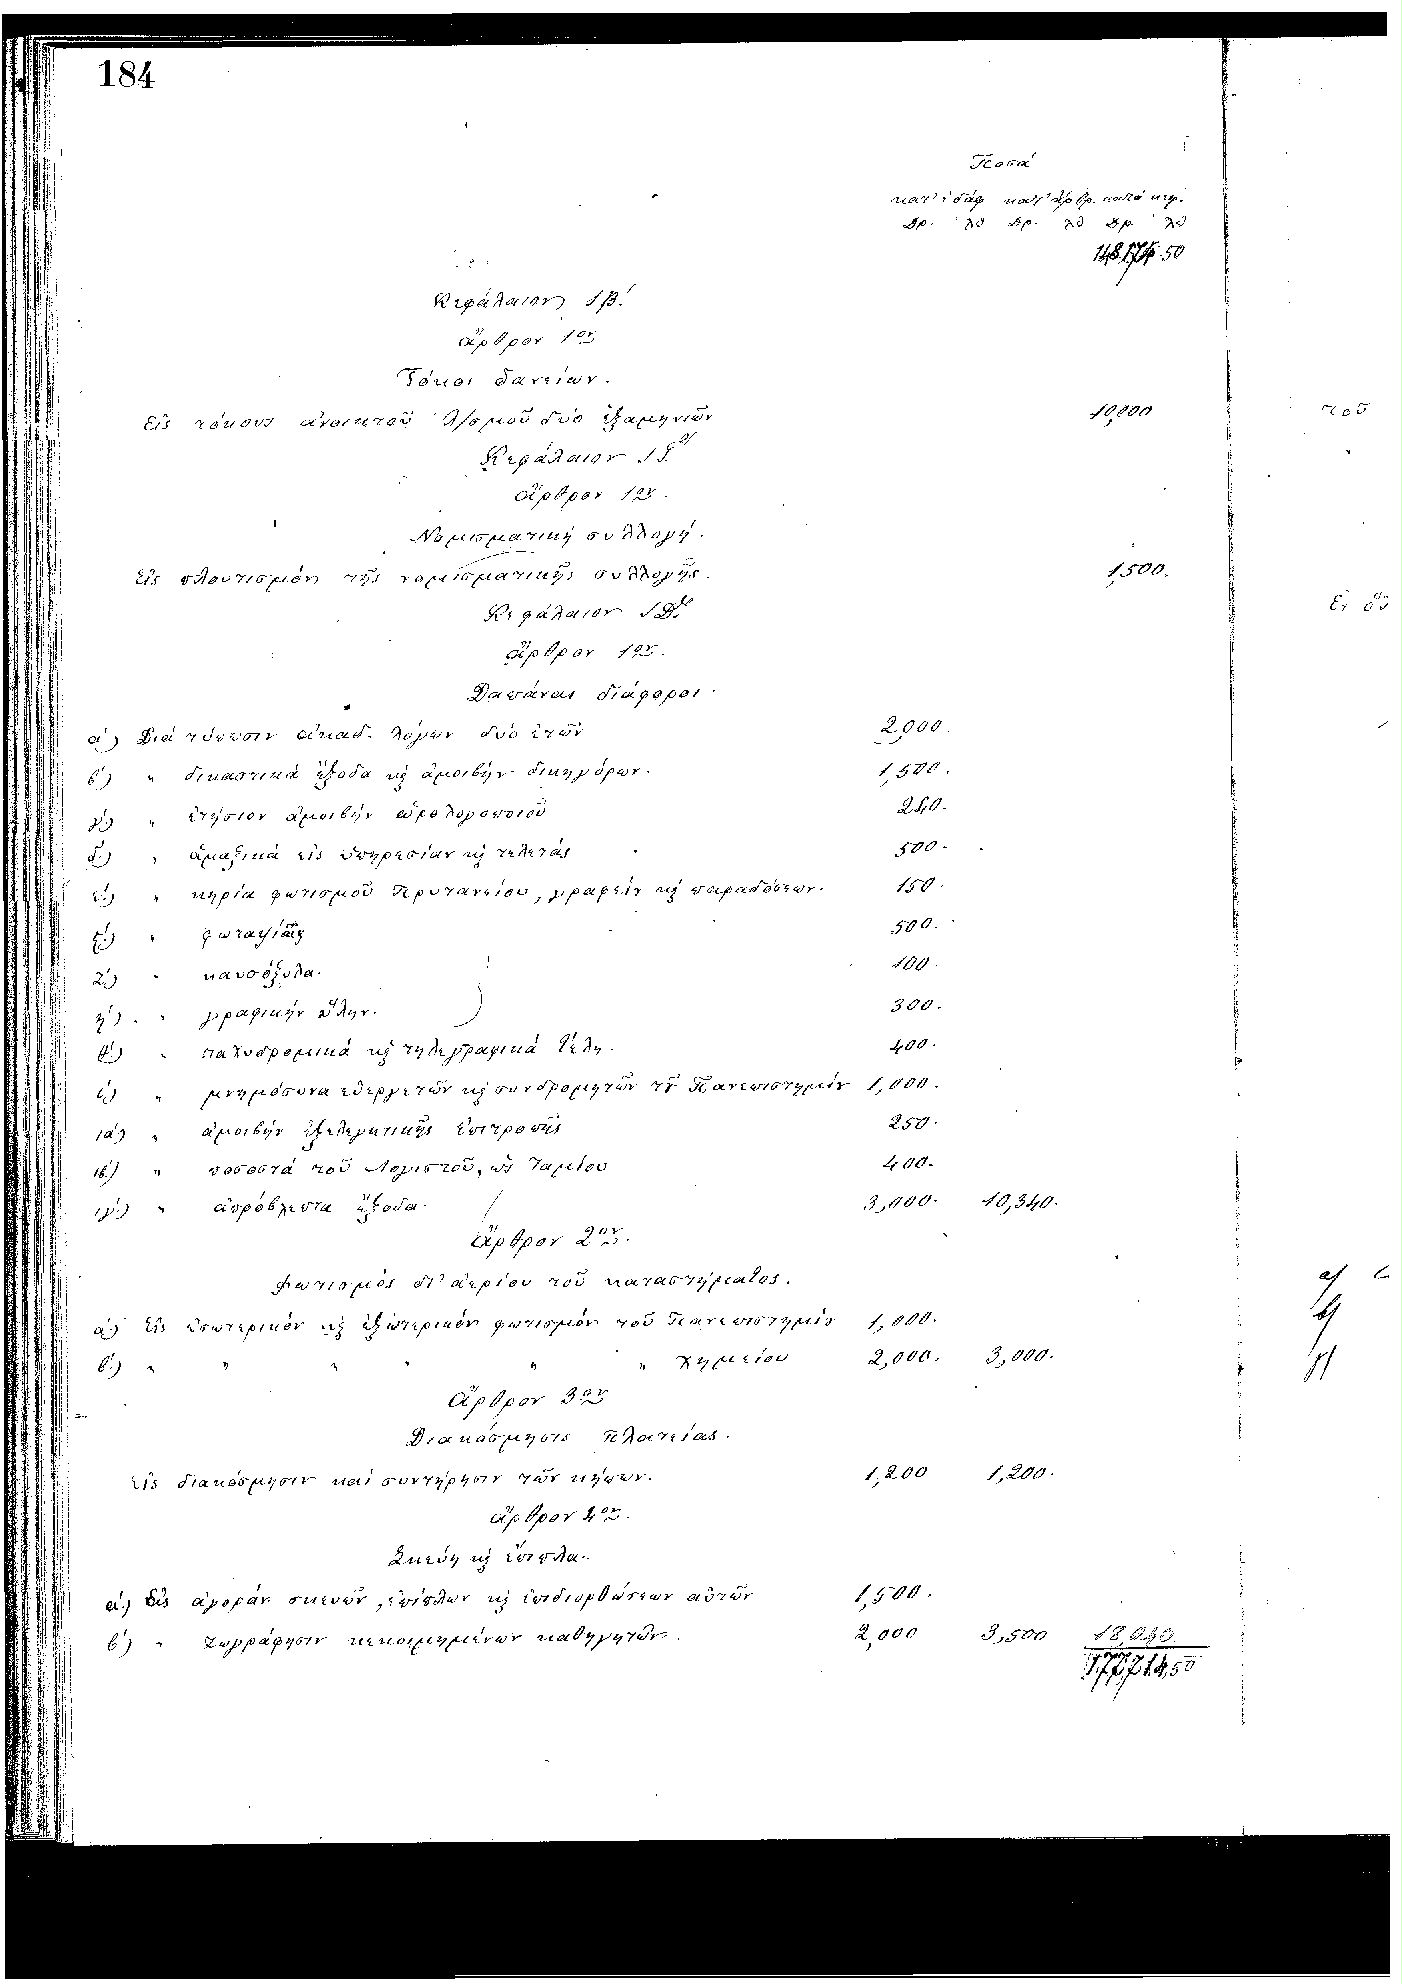 184
Ποσά
κατ' ἐδάφ κατ' ἄρθρ. κατά κεφ.
Δρ. λδ Δρ. λδ Δρ. λδ
50
Κεφάλαιον ΙΒ΄.
ἄρθρον 1ον
Τόκοι δανείων.
Εἰς τόκους ἀνοικτοῦ λ/σμοῦ δύο ἑξαμηνιῶν 10,000
Κεφάλαιον ΙΓ΄
ἄρθρον 1ον.
Νομισματική συλλογή.
Εἰς πλουτισμόν τῆς νομισματικῆς συλλογῆς. 1,500.
Κεφάλαιον ΙΔ΄
ἄρθρον 1ον.
Δαπάναι διάφοροι.
α΄) Διά τύπωσιν ἀκαδ. λόγων δύο ἐτῶν 2,000.
β΄) " δικαστικά ἔξοδα κ ἀμοιβήν δικηγόρων. 1,500.
γ΄) " ἐτήσιον ἀμοιβήν ὡρολογοποιοῦ 240.
δ΄) " ἁμαξικά εἰς ὑπηρεσίαν κ τελετάς 500.
ε΄) " κηρία φωτισμοῦ Πρυτανείου, γραφείν κ παραδόσεων. 150.
ς΄) " φωταψίας 500.
ζ΄) " καυσόξυλα. 100.
η΄) " γραφικήν ὕλην. 300.
θ΄) " ταχυδρομικά κ τηλεγραφικά τέλη. 400.
ι΄) " μνημόσυνα εὐεργετῶν κ συνδρομητῶν τ Πανεπιστημίν 1,000.
ια΄) " ἀμοιβήν ἐξελεγκτικῆς ἐπιτροπῆς 250.
ιβ΄) " ποσοστά τοῦ Λογιστοῦ, ὡς Ταμίου 400.
ιγ΄) " ἀπρόβλεπτα ἔξοδα. 3,000. 10,340.
Ἄρθρον 2ον.
Φωτισμός δι' ἀερίου τοῦ καταστήματος.
α΄) Εἰς ἐσωτερικόν κ ἐξωτερικόν φωτισμόν τοῦ Πανεπιστημίς 1,000.
β΄) " " " " " " χημείου 2,000. 3,000.
Ἄρθρον 3ον
Διακόσμησις Πλατείας.
Εἰς διακόσμησιν καί συντήρησιν τῶν κήπων. 1,200 1,200.
ἄρθρον 4ον.
Σκεύη κ ἔπιπλα.
α΄) Εἰς ἀγοράν σκευῶν, ἐπίπλων κ ἐπιδιορθώσεων αὐτῶν 1,500.
β΄) " ζωγράφησιν κεκοιμημένων καθηγητῶν. 2,000 3,500 18,040
177,714,50
τοῦ